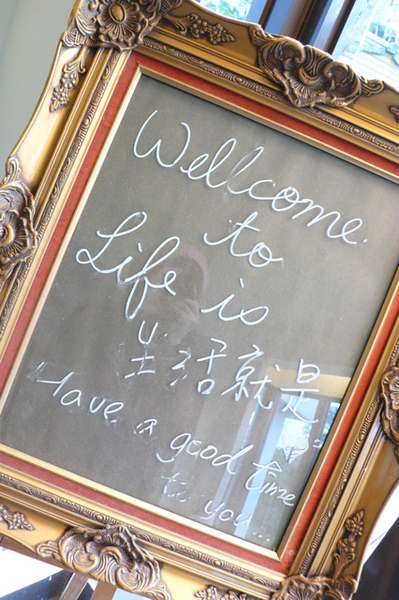 Wellcome
to
Life is
生活就是
Have a good time
to you...